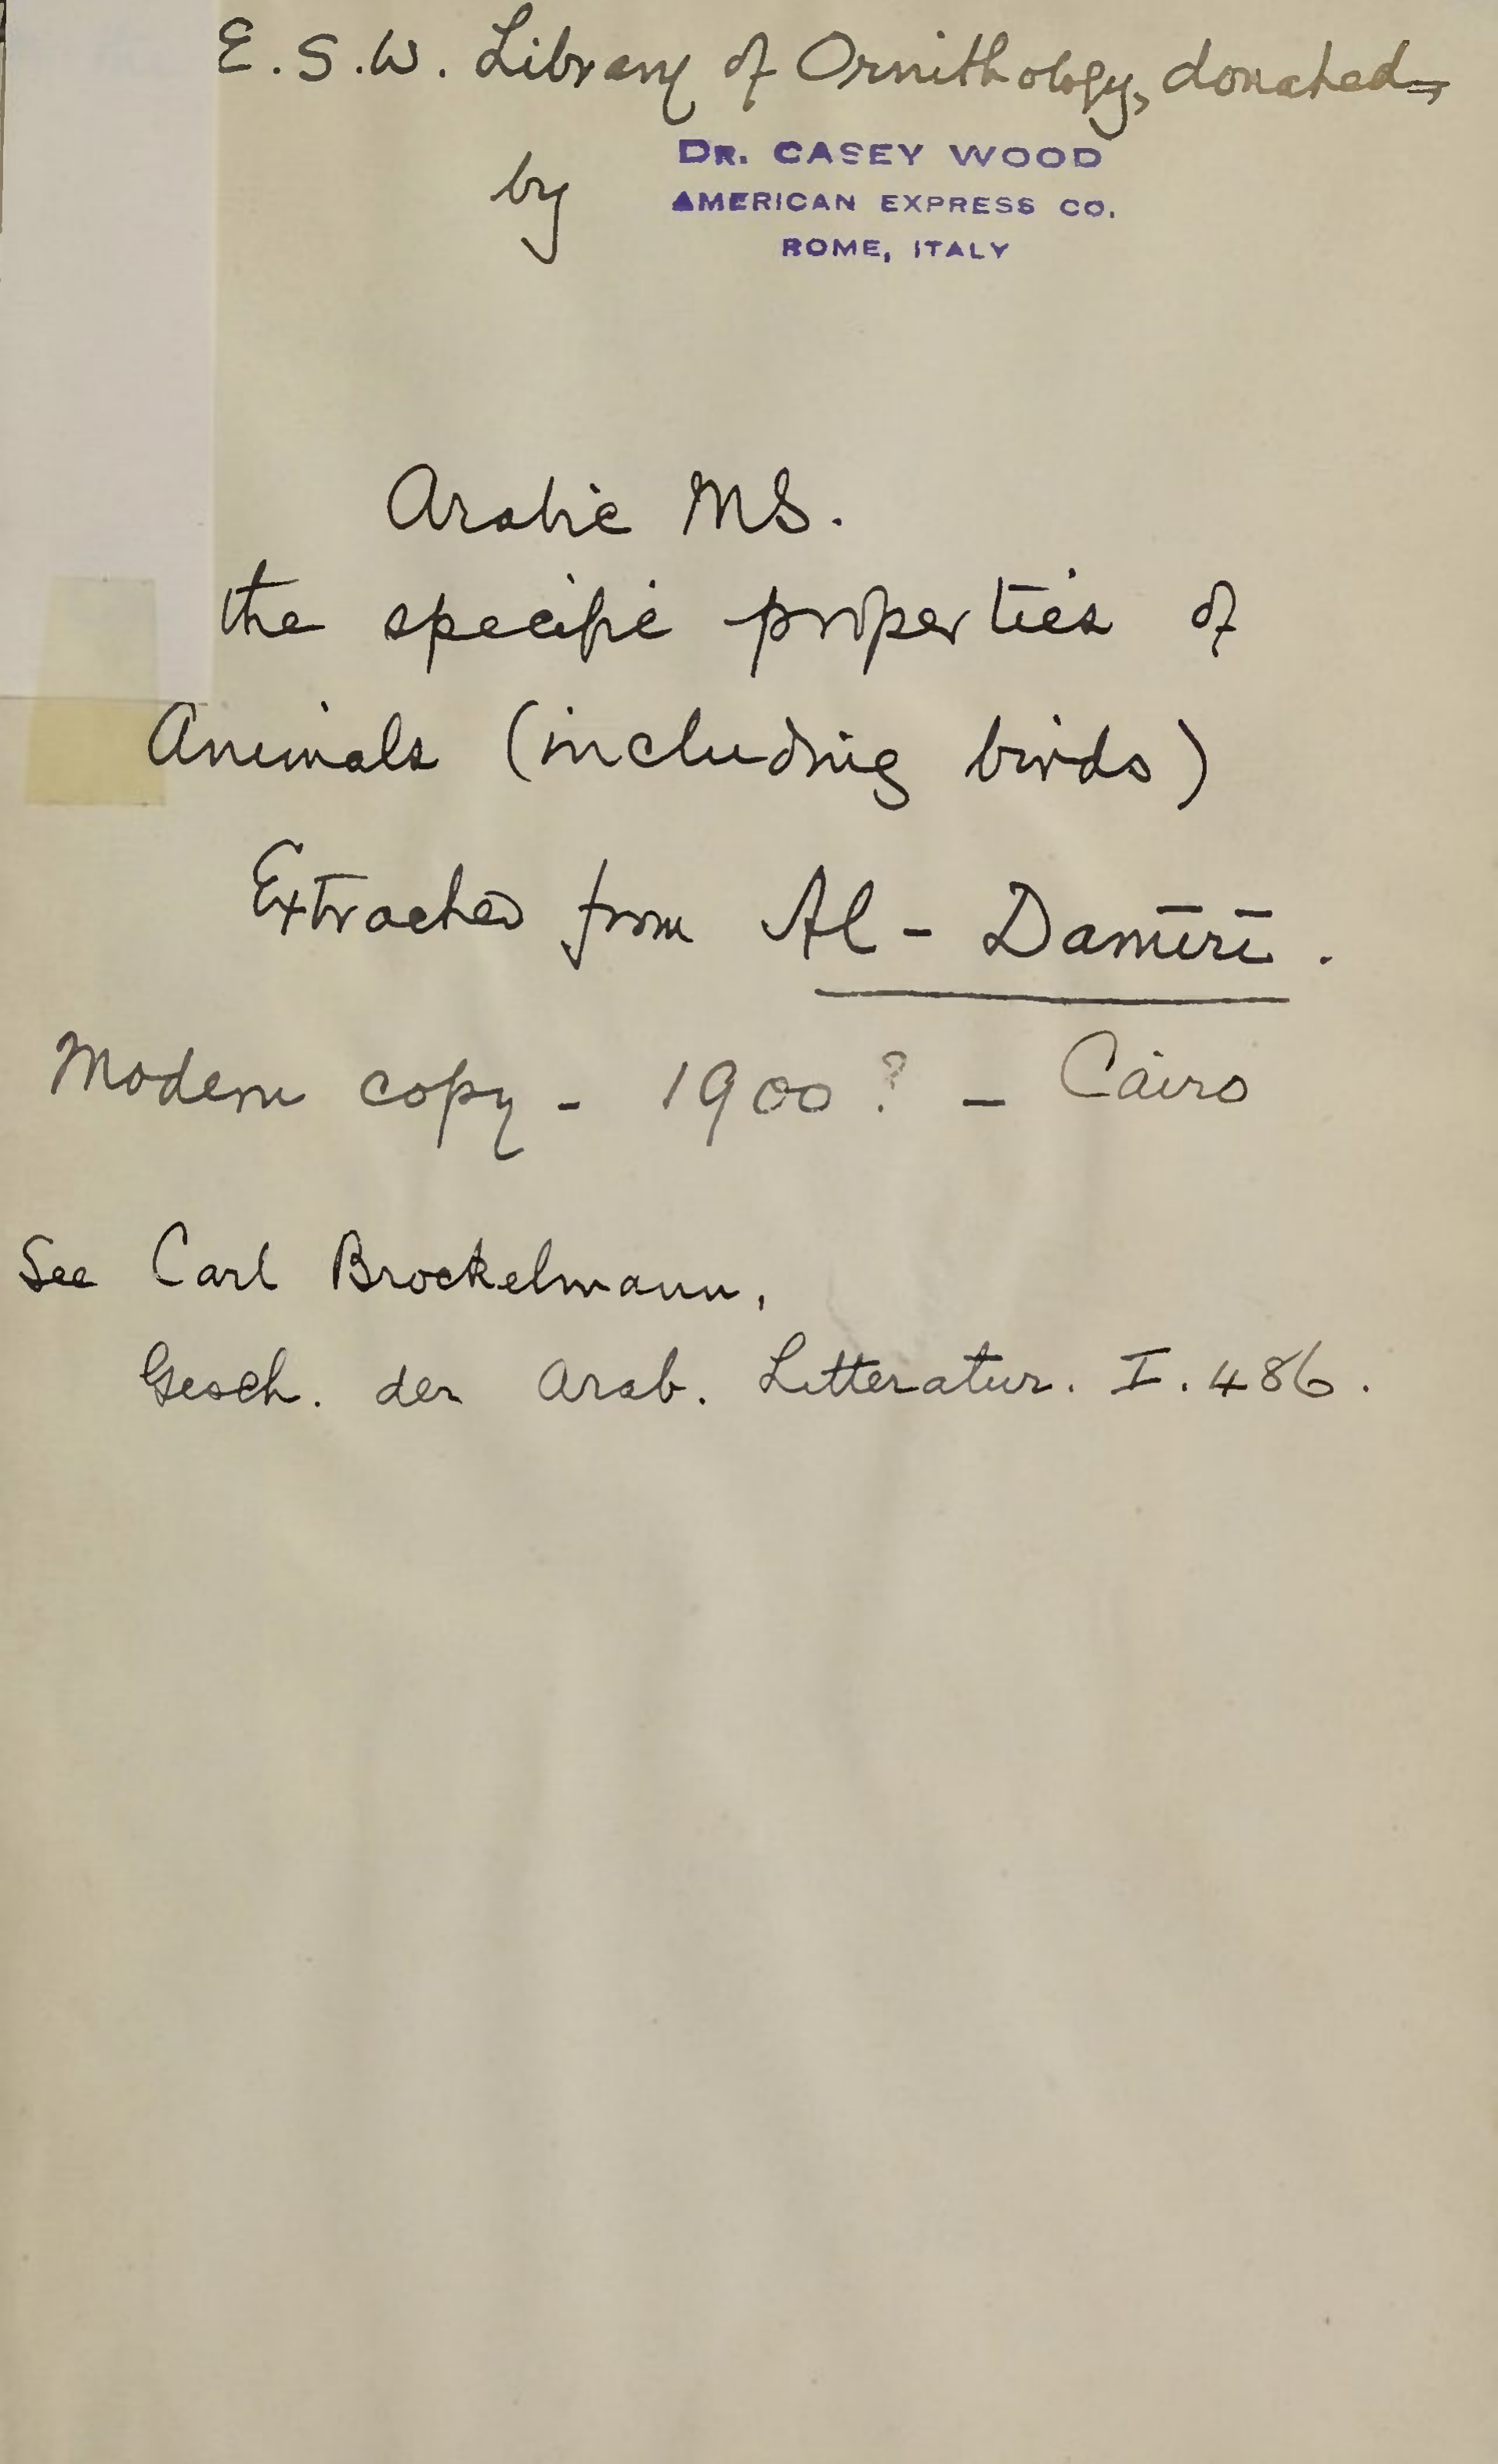 E.S.W. Library of Ornithology, donated
by
DR. CASEY WOOD
AMERICAN EXPRESS CO.
ROME, ITALY
Arabic MS.
the specific properties of
Animals (including birds)
Extracted from Al-Damīrī.
Modern copy - 1900? - Cairo
See Carl Brockelmann,
Gesch. der Arab. Litteratur. I. 486.